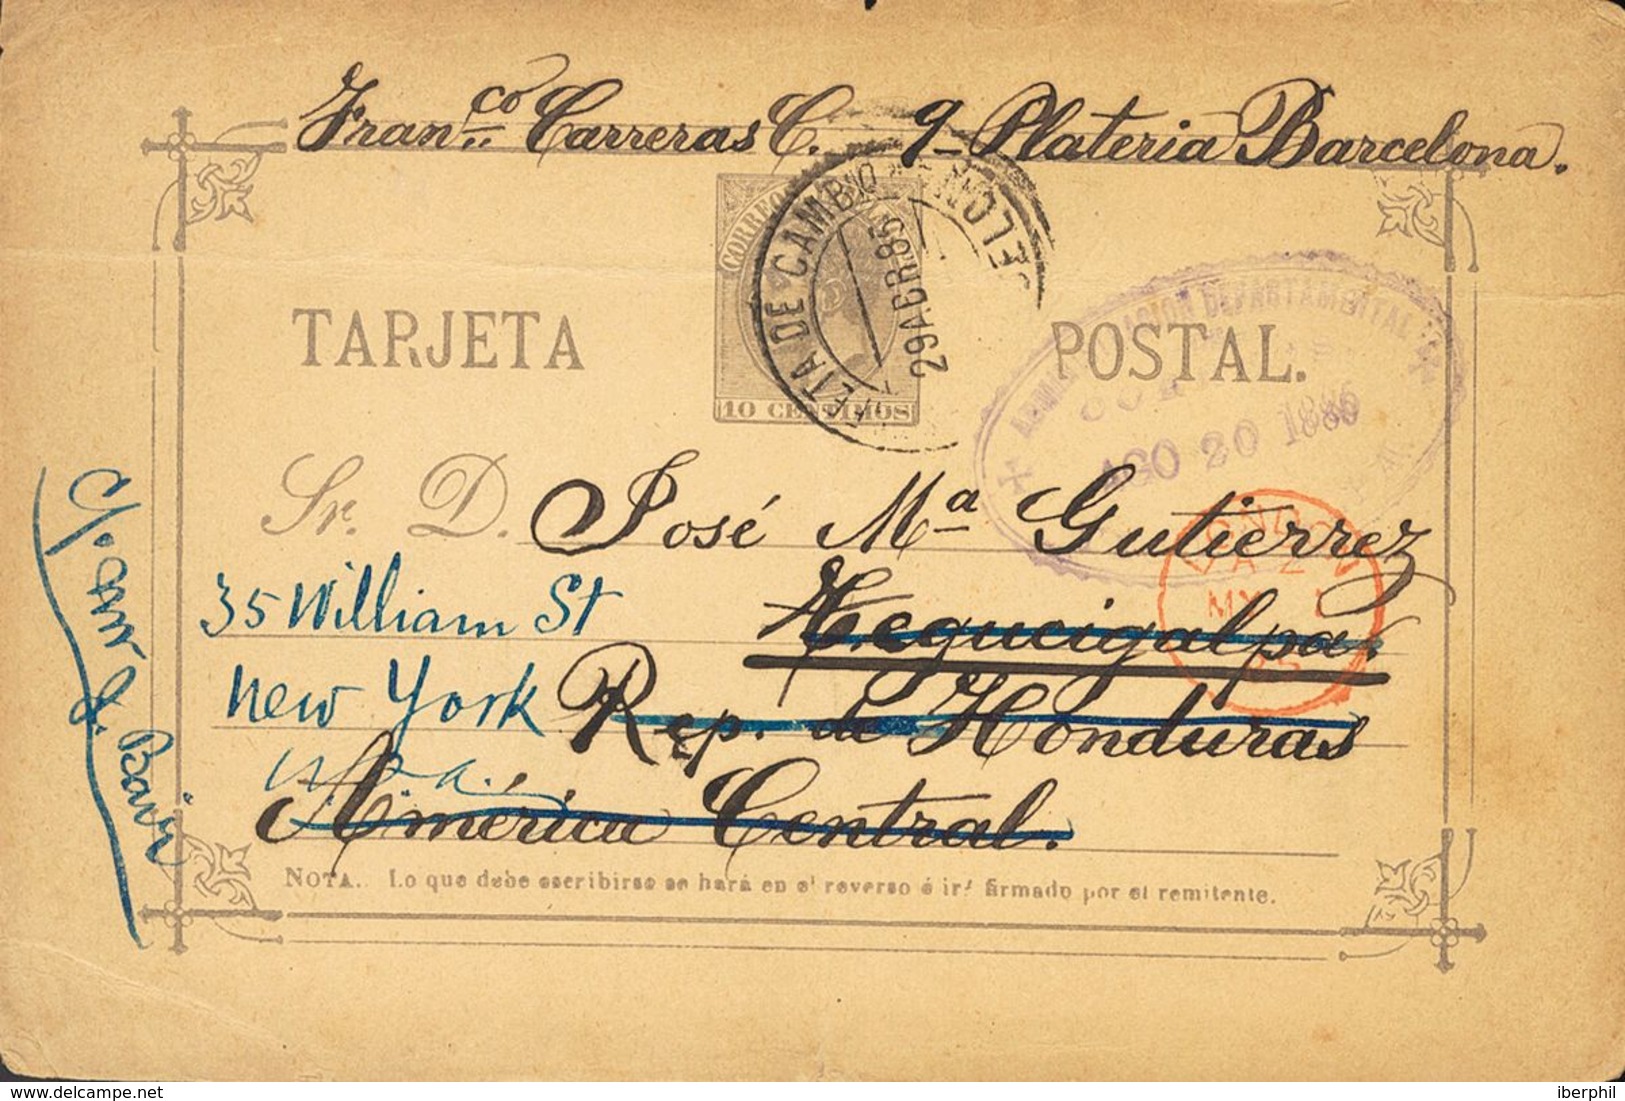 Fran.co Carreras C. 9- Plateria Barcelona.
CORREO
10 CENTIMOS
ETA DE CAMBIO
ELON
29 ABR 85
TARJETA POSTAL.
ADMINISTRACION DEPARTAMENTAL
AGO 20 1886
LONDON
MY 1
85
Sr. D. José Ma Gutierrez
Tegucigalpa.
Rep. de Honduras
América Central.
35 William St
New York
NOTA. Lo que debe escribirse se hará en el reverso é irá firmado por el remitente.
delcampe.net
iberphil